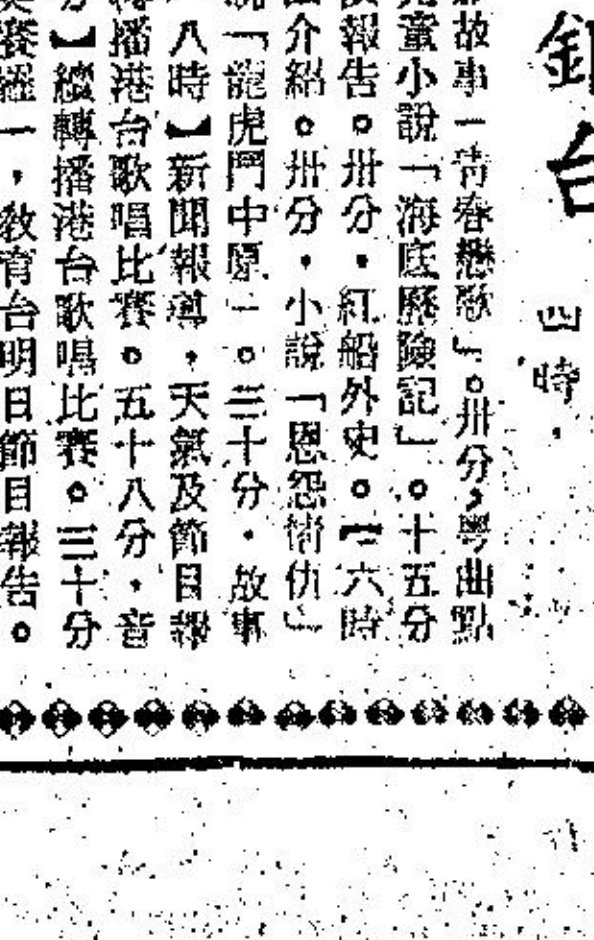 銀台
四時，
故事「青春戀歌」。卅分，粵曲點
童小說「海底歷險記」。十五分
報告。卅分，紅船外史。【六時
介紹。卅分，小說「恩怨情仇」
「龍虎鬥中原」。三十分，故事
八時】新聞報導，天氣及節目報
播港台歌唱比賽。五十八分，音
】續轉播港台歌唱比賽。三十分
，敎育台明日節目報告。